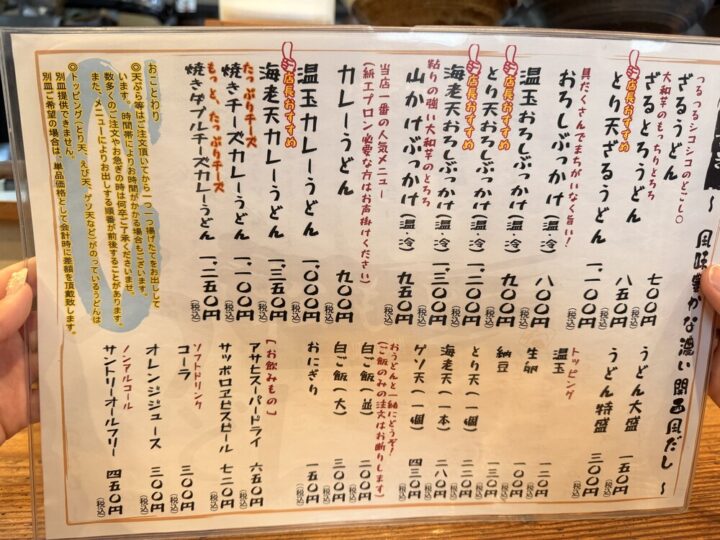 ～ 風味豊かな濃い関西風だし ～
つるつるシコシコのどごし〇
ざるうどん 七〇〇円（税込）
大和芋のもっちりとろろ
ざるとろうどん 八五〇円（税込）
店長おすすめ
とり天ざるうどん 一、一〇〇円（税込）
具だくさんでまちがいなく旨い！
おろしぶっかけ（温・冷） 八〇〇円（税込）
温玉おろしぶっかけ（温・冷） 九〇〇円（税込）
店長おすすめ
とり天おろしぶっかけ（温・冷） 一、二〇〇円（税込）
店長おすすめ
海老天おろしぶっかけ（温・冷） 一、三〇〇円（税込）
粘りの強い大和芋のとろろ
山かけぶっかけ（温・冷） 九五〇円（税込）
当店一番の人気メニュー
（紙エプロン必要な方はお声掛けください）
カレーうどん 九〇〇円（税込）
温玉カレーうどん 一、〇〇〇円（税込）
店長おすすめ
海老天カレーうどん 一、三五〇円（税込）
たっぷりチーズ
焼きチーズカレーうどん 一、一〇〇円（税込）
もっと、たっぷりチーズ
焼きダブルチーズカレーうどん 一、二五〇円（税込）
おことわり
◎天ぷら等はご注文頂いてから一つ一つ揚げたてをお出しして
います。時間帯によりお時間がかかる場合もございます。
数多くのご注文やお急ぎの時は何卒ご了承くださいませ。
また、メニューによりお出しする順番が前後することがあります。
◎トッピング（とり天、えび天、ゲソ天など）がのっているうどんは、
別皿提供できません。
別皿ご希望の場合は、単品価格として会計時に差額を頂戴致します。
うどん大盛 一五〇円（税込）
うどん特盛 三〇〇円（税込）
トッピング
温玉
生卵
納豆
とり天（一個）
海老天（一本）
ゲソ天（一個）
おうどんと一緒にどうぞ！
（ご飯のみの注文はお断りします）
白ご飯（並） 二〇〇円（税込）
白ご飯（大） 三〇〇円（税込）
おにぎり 一五〇円（税込）
【お飲みもの】
アサヒスーパードライ 六五〇円（税込）
サッポロヱビスビール 七二〇円（税込）
ソフトドリンク
コーラ 三〇〇円（税込）
オレンジジュース 三〇〇円（税込）
ノンアルコール
サントリーオールフリー 四五〇円（税込）